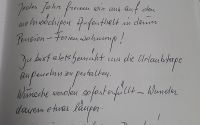 Jedes Jahr freuen wir uns auf den
mehrwöchigen Aufenthalt in deiner
Pension - Ferienwohnung!
Du bist stets bemüht uns die Urlaubstage
angenehm zu gestalten.
Wünsche werden sofort erfüllt - Wunder
dauern etwas länger.